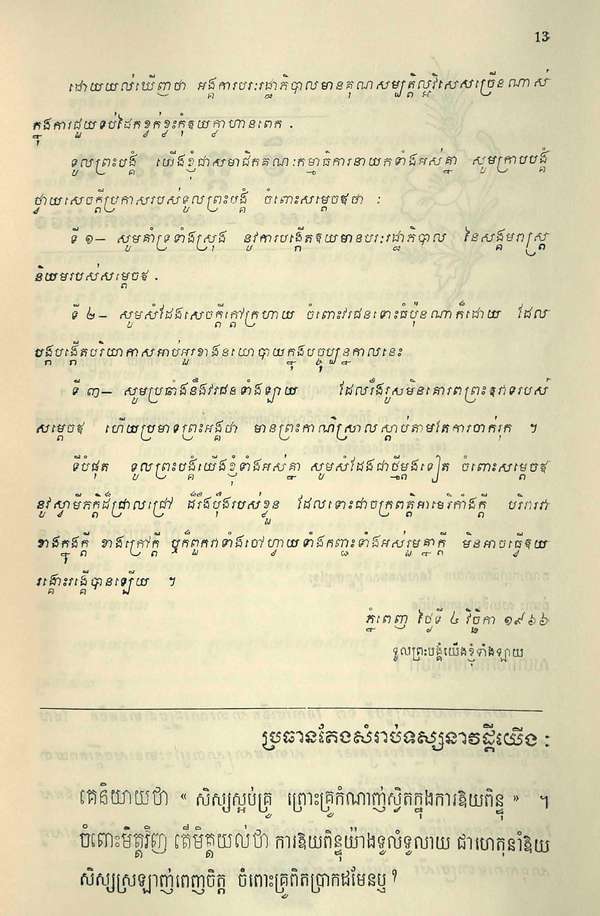 13
ដោយយល់ឃើញថា អង្គការបរៈរដ្ឋាភិបាលមានគុណសម្បត្តិល្អវិសេសច្រើនណាស់
ក្នុងការជួយទប់ដៃកខ្វក់ខ្វះកុំឱ្យក្លាហានពេក .
ទូលព្រះបង្គំ យើងខ្ញុំជាសមាជិកគណៈកម្មាធិការនាយកទាំងអស់គ្នា សូមក្រាបបង្គំ
ថ្វាយសេចក្តីប្រកាសរបស់ទូលព្រះបង្គំ ចំពោះសម្តេចឪថា :
ទី ១— សូមគាំទ្រទាំងស្រុង នូវការបង្កើតឱ្យមានបរៈរដ្ឋាភិបាល នៃសង្គមរាស្ត្រ
និយមរបស់សម្តេចឪ .
ទី ២— សូមសំដែងសេចក្តីក្តៅក្រហាយ ចំពោះវរជនទោះធំប៉ុនណាក៏ដោយ ដែល
បង្កបង្កើតបរិយាកាសអាប់អួរខាងនយោបាយក្នុងបច្ចុប្បន្នកាលនេះ
ទី ៣— សូមប្រឆាំងនឹងវរជនទាំងឡាយ ដែលរឹងរូសមិនគោរពព្រះឱវាទរបស់
សម្តេចឪ ហើយប្រមាទព្រះអង្គថា មានព្រះកាណ៌ស្រាលស្តាប់តាមតែការចាក់រុក ។
ទីបំផុត ទូលព្រះបង្គំយើងខ្ញុំទាំងអស់គ្នា សូមសំដែងជាថ្មីម្តងទៀត ចំពោះសម្តេចឪ
នូវស្វាមីភក្តិដ៏ជ្រាលជ្រៅ ដ៏រឹងប៉ឹងរបស់ខ្លួន ដែលទោះជាចក្រពត្តិអាមេរិកាំងក្តី បរិវារវា
ខាងក្នុងក្តី ខាងក្រៅក្តី ឬក៏ពួកវាទាំងចៅហ្វាយទាំងកញ្ជះទាំងអស់រួមគ្នាក្តី មិនអាចធ្វើឱ្យ
រង្គោះរង្គើបានឡើយ ។
ភ្នំពេញ ថ្ងៃទី ៤ វិច្ឆិកា ១៩៦៦
ទូលព្រះបង្គំយើងខ្ញុំទាំងឡាយ
ប្រធានតែងសំរាប់ទស្សនាវដ្តីយើង :
គេនិយាយថា « សិស្សស្អប់គ្រូ ព្រោះគ្រូកំណាញ់ស្វិតក្នុងការឱយពិន្ទុ » ។
ចំពោះមិត្តវិញ តើមិត្តយល់ថា ការឱយពិន្ទុយ៉ាងទូលំទូលាយ ជាហេតុនាំឱយ
សិស្សស្រឡាញ់ពេញចិត្ត ចំពោះគ្រូពិតប្រាកដមែនឬ ?